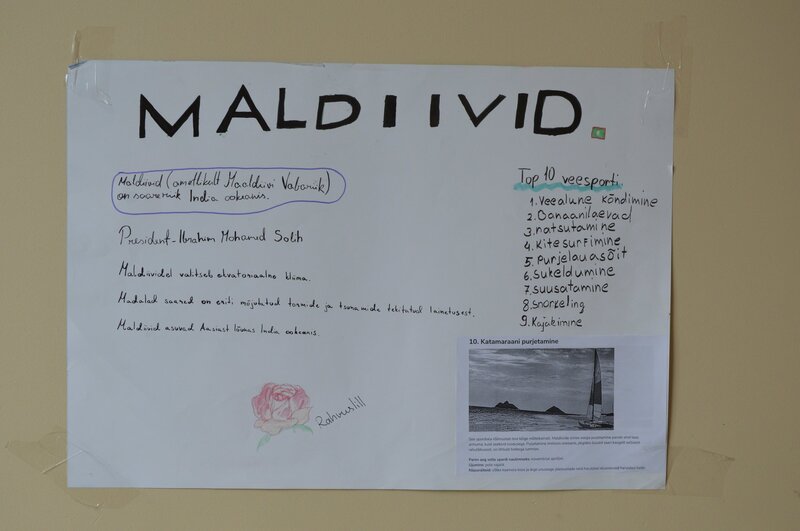 MALDIIVID.
Maldiivid (ametlikult Maldiivi Vabariik)
on saareriik India ookeanis.
President - Ibrahim Mohamed Solih
Maldiividel valitseb ekvatoriaalne kliima.
Madalad saared on eriti mõjutatud tormide ja tsunamide tekitatud lainetusest.
Maldiivid asuvad Aasiast lõunas India ookeanis.
Rahvuslill
Top 10 veesporti
1. Veealune kõndimine
2. Banaanilaevad
3. natsutamine
4. Kitesurfimine
5. Purjelauasõit
6. Sukeldumine
7. Suusatamine
8. Snorkeling
9. Kajakimine
10. Katamaraani purjetamine